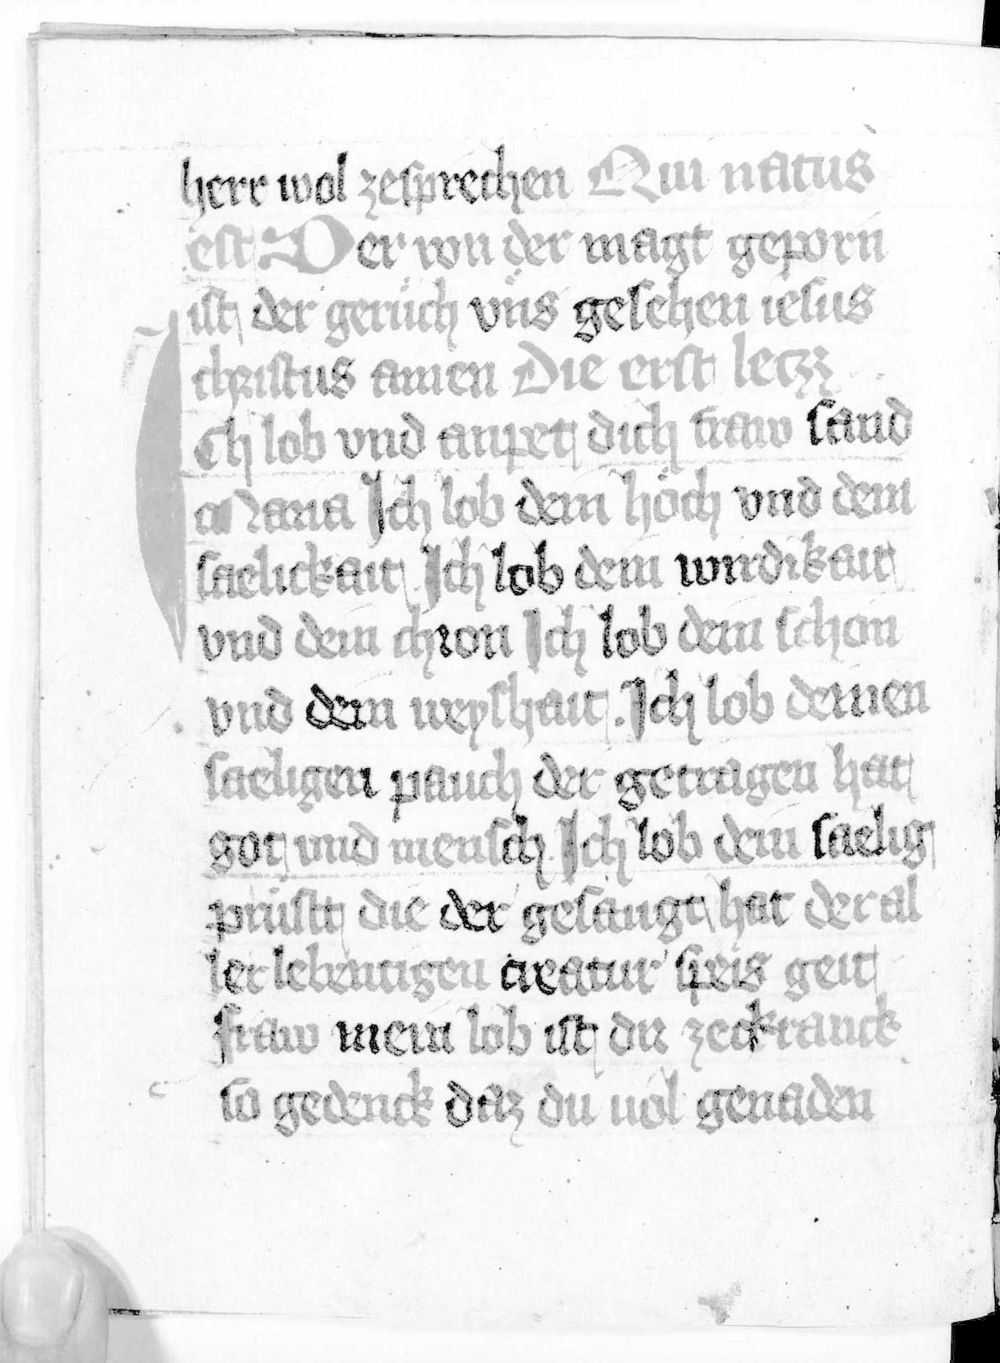 herr wol zesprechen Qui natus
est Der von der magt geporn
ist der gerüch vns gesehen iesus
christus amen Die erst leczz
Ich lob vnd anpet dich fraw sand
Maria Ich lob dein höch vnd dein
saelickait Ich lob dein wirdikait
vnd dein chron Ich lob dein schon
vnd dein weyshait . Ich lob deinen
saeligen pauch der getragen hat
got vnd mensch Ich lob dein saelig
prüstt die der gesaugt hat der al
ler lebentigen creatur speis geit
fraw mein lob ist dir zeckranck
so gedenck daz du vol genaden